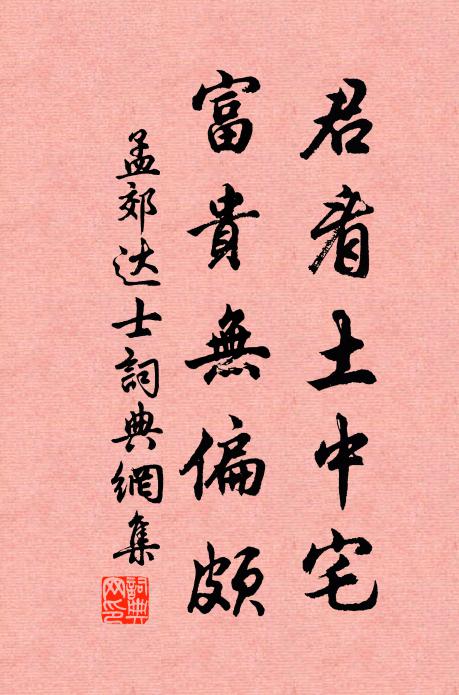 君看土中宅
富貴無偏頗
孟郊达士詞典網集
詞典網印